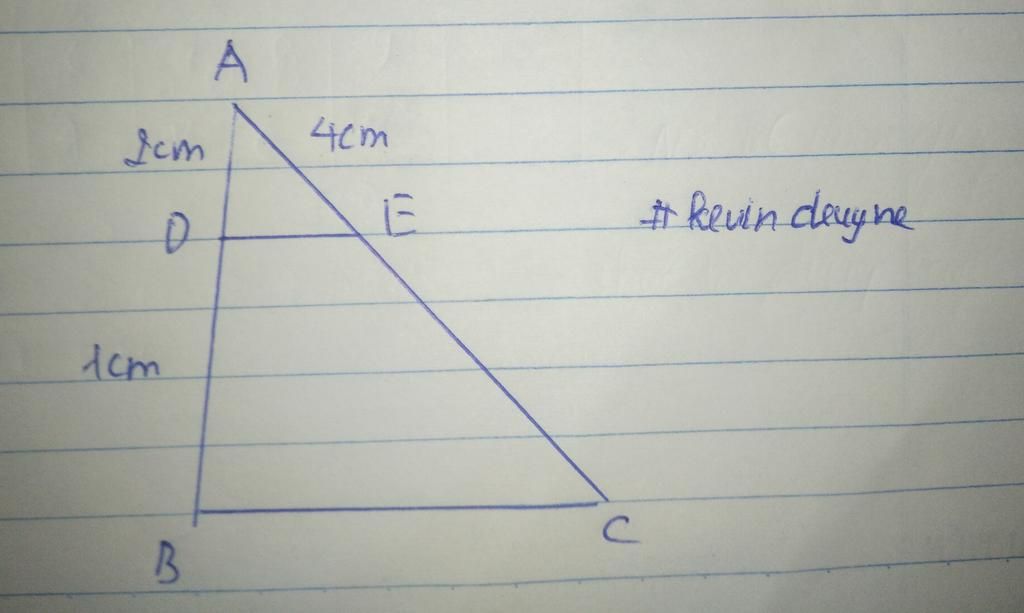 A
4cm
2cm
D
E
# kevin
1cm
B
C